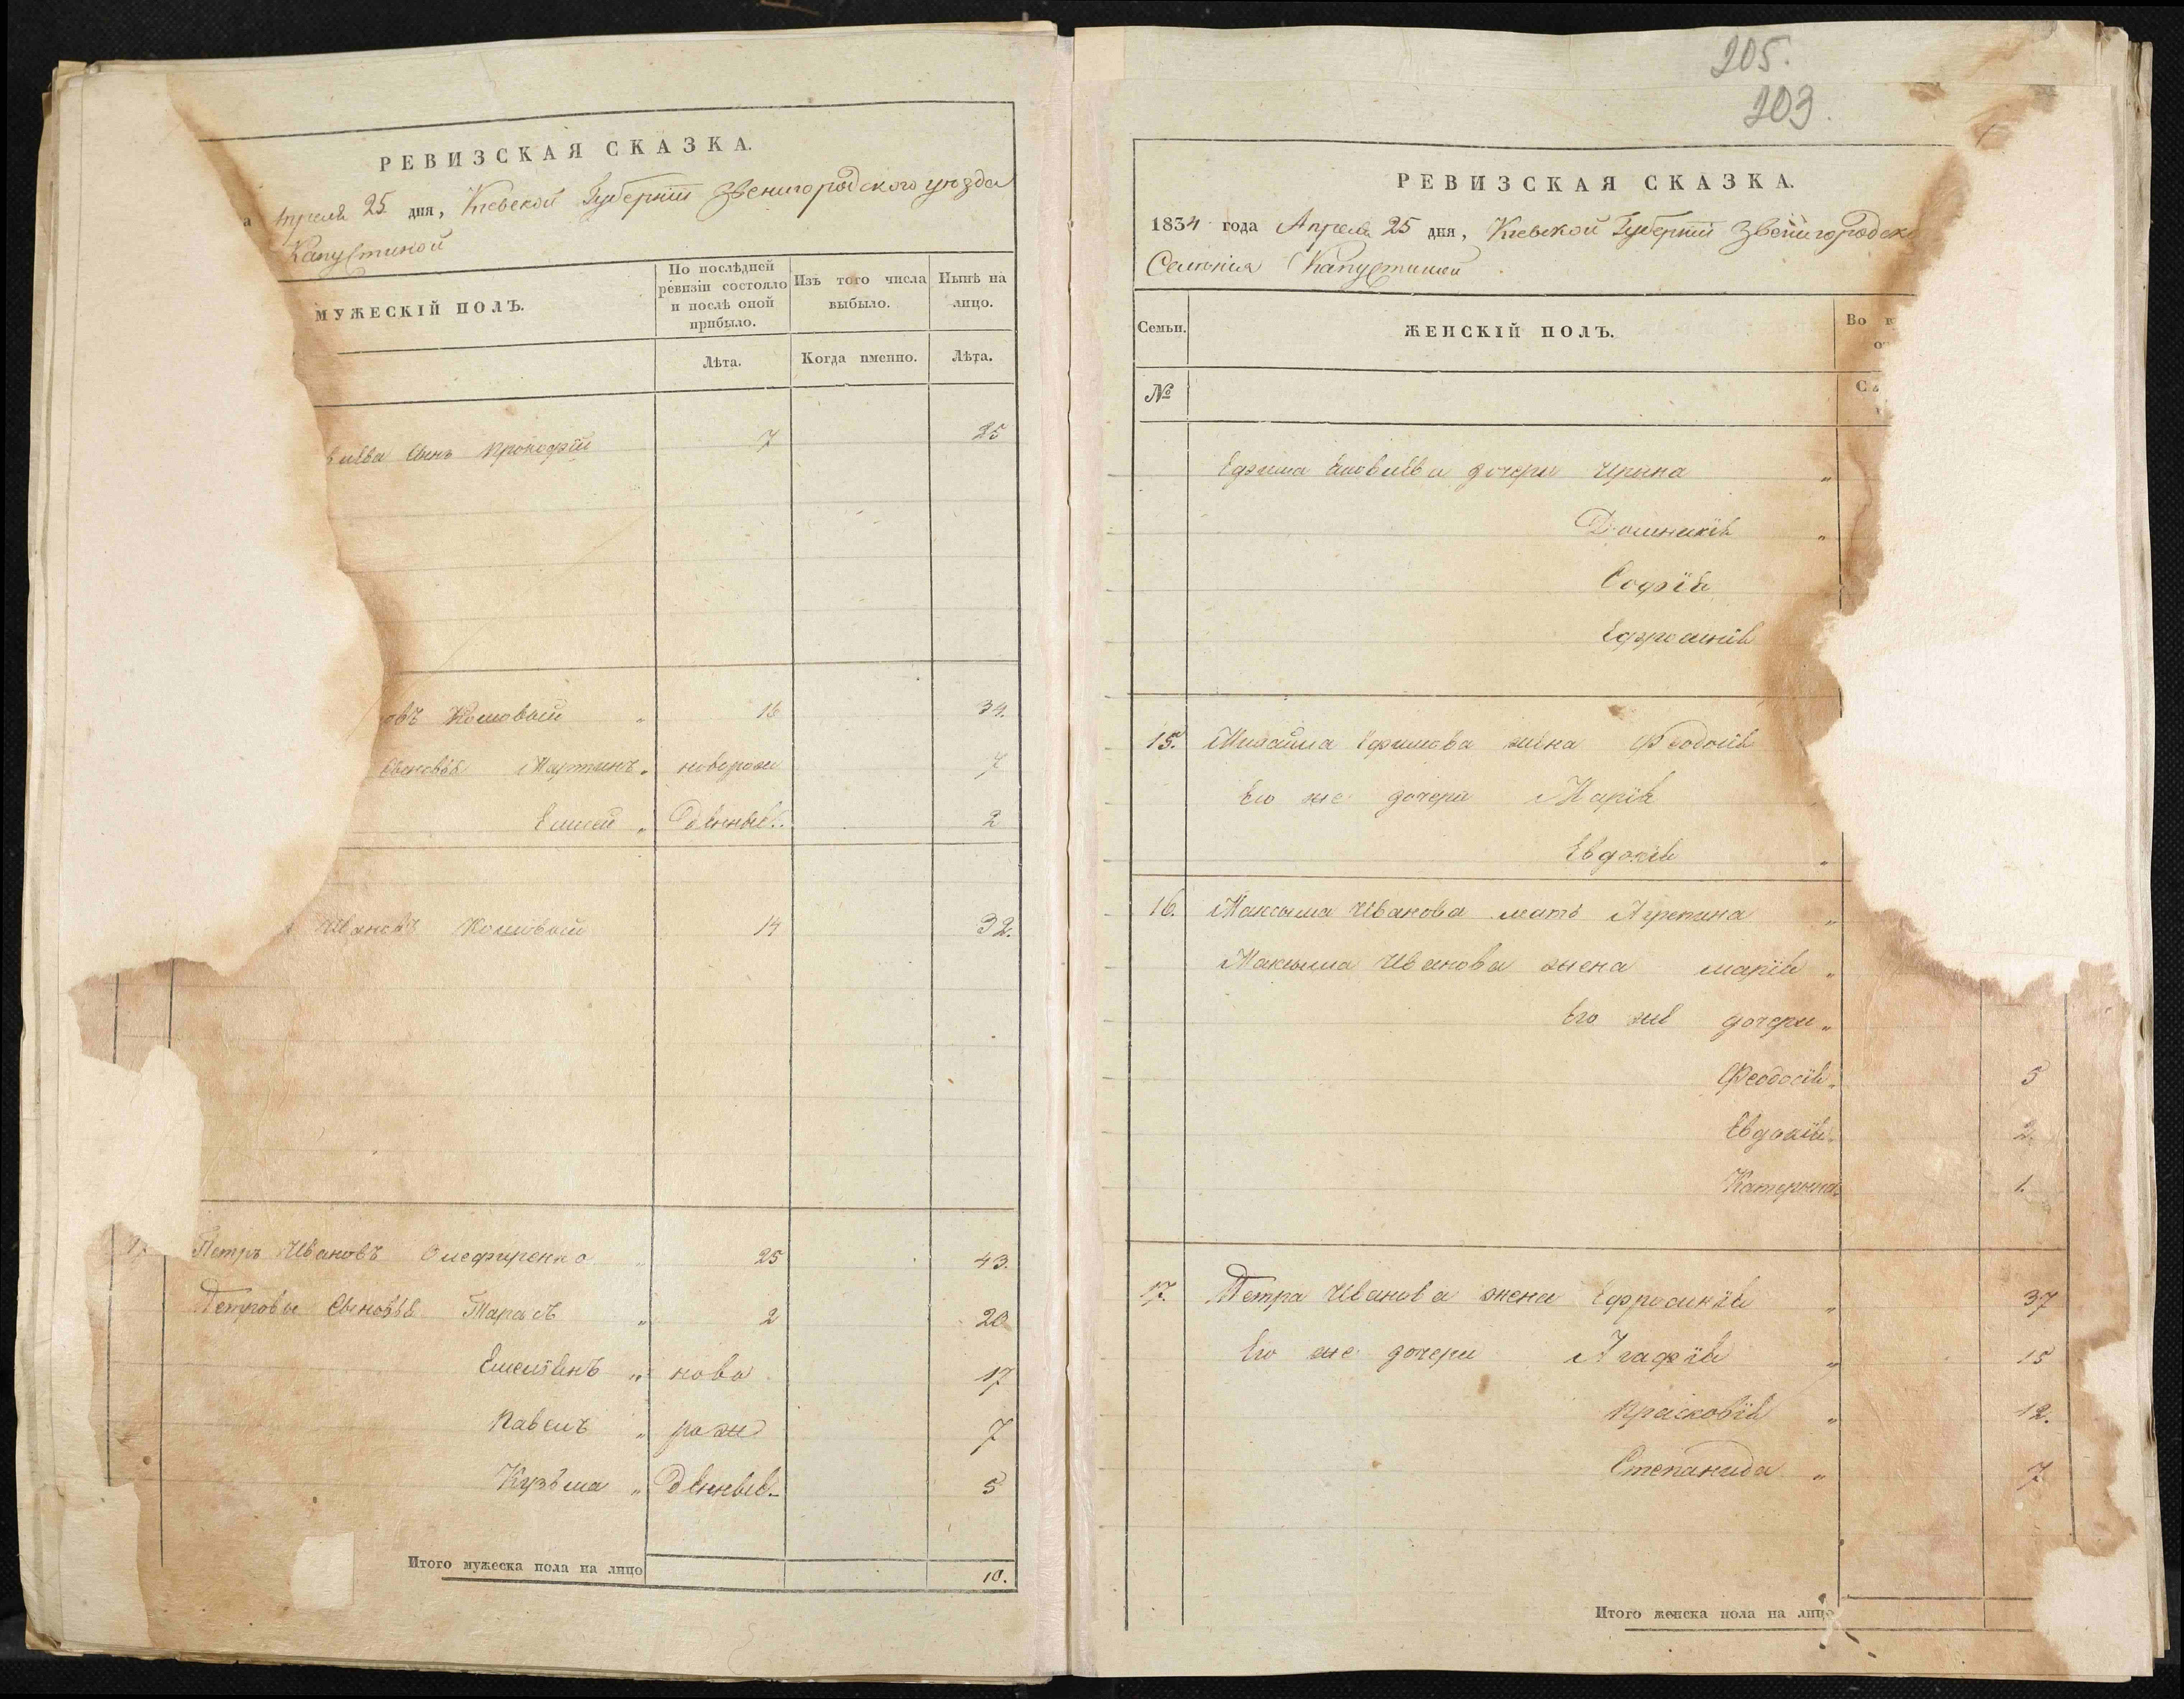 РЕВИЗСКАЯ СКАЗКА.
Апреля 25 дня, Кіевской Губерніи Звенигородского уѣзда
Капустиной
МУЖЕСКІЙ ПОЛЪ.
По послѣдней ревизіи состояло и послѣ оной прибыло.
Изъ того числа выбыло.
Нынѣ на лицо.
Лѣта.
Когда именно.
Лѣта.
сынъ Прокофій 7 25
овъ 16 34.
сыновья Мартинъ „ новорож 7
Елисей „ денные. 2
Ивановъ 14 32.
17 Петръ Ивановъ Олефиренко „ 25 43.
Петровы Сыновья Тарасъ „ 2 20
Емелянъ „ ново 17
Павелъ „ рож 7
Кузьма „ денные. 5
Итого мужеска пола на лицо 10.
205.
203.
РЕВИЗСКАЯ СКАЗКА.
1834 года Апреля 25 дня, Кіевской Губерніи Звенигородско
Селенія Капустиной
Семьи.
ЖЕНСКІЙ ПОЛЪ.
Во в
№
Ефима дочери Ирина „
Домникія „
Софія
Ефросинія
15. Михайла Ефимова жена Феодосія
Его же дочери Марія
Евдокія „
16. Максыма Иванова мать Агрепина „
Максыма Иванова жена марія „
Его же дочери „
Феодосія „ 5
Евдокія „ 2.
Катерина „ 1.
17. Петра Иванова жена Ефросинія „ 37
Его же дочери Агафія „ 15
Прасковія „ 12.
Степанида „ 7
Итого женска пола на лицо